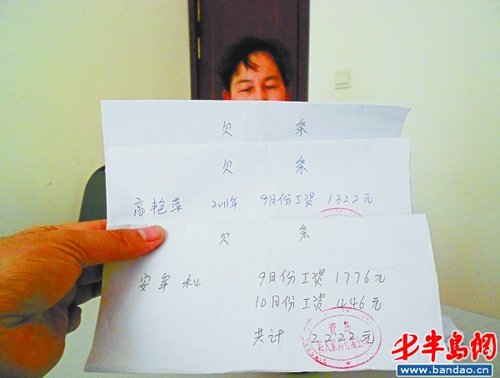 欠 条
欠 条
高艳萍 2011年 9月份工资 1322元
欠 条
安牟和
9月份工资 1776元
10月份工资 446元
共计 2222元
半岛网
www.bandao.cn